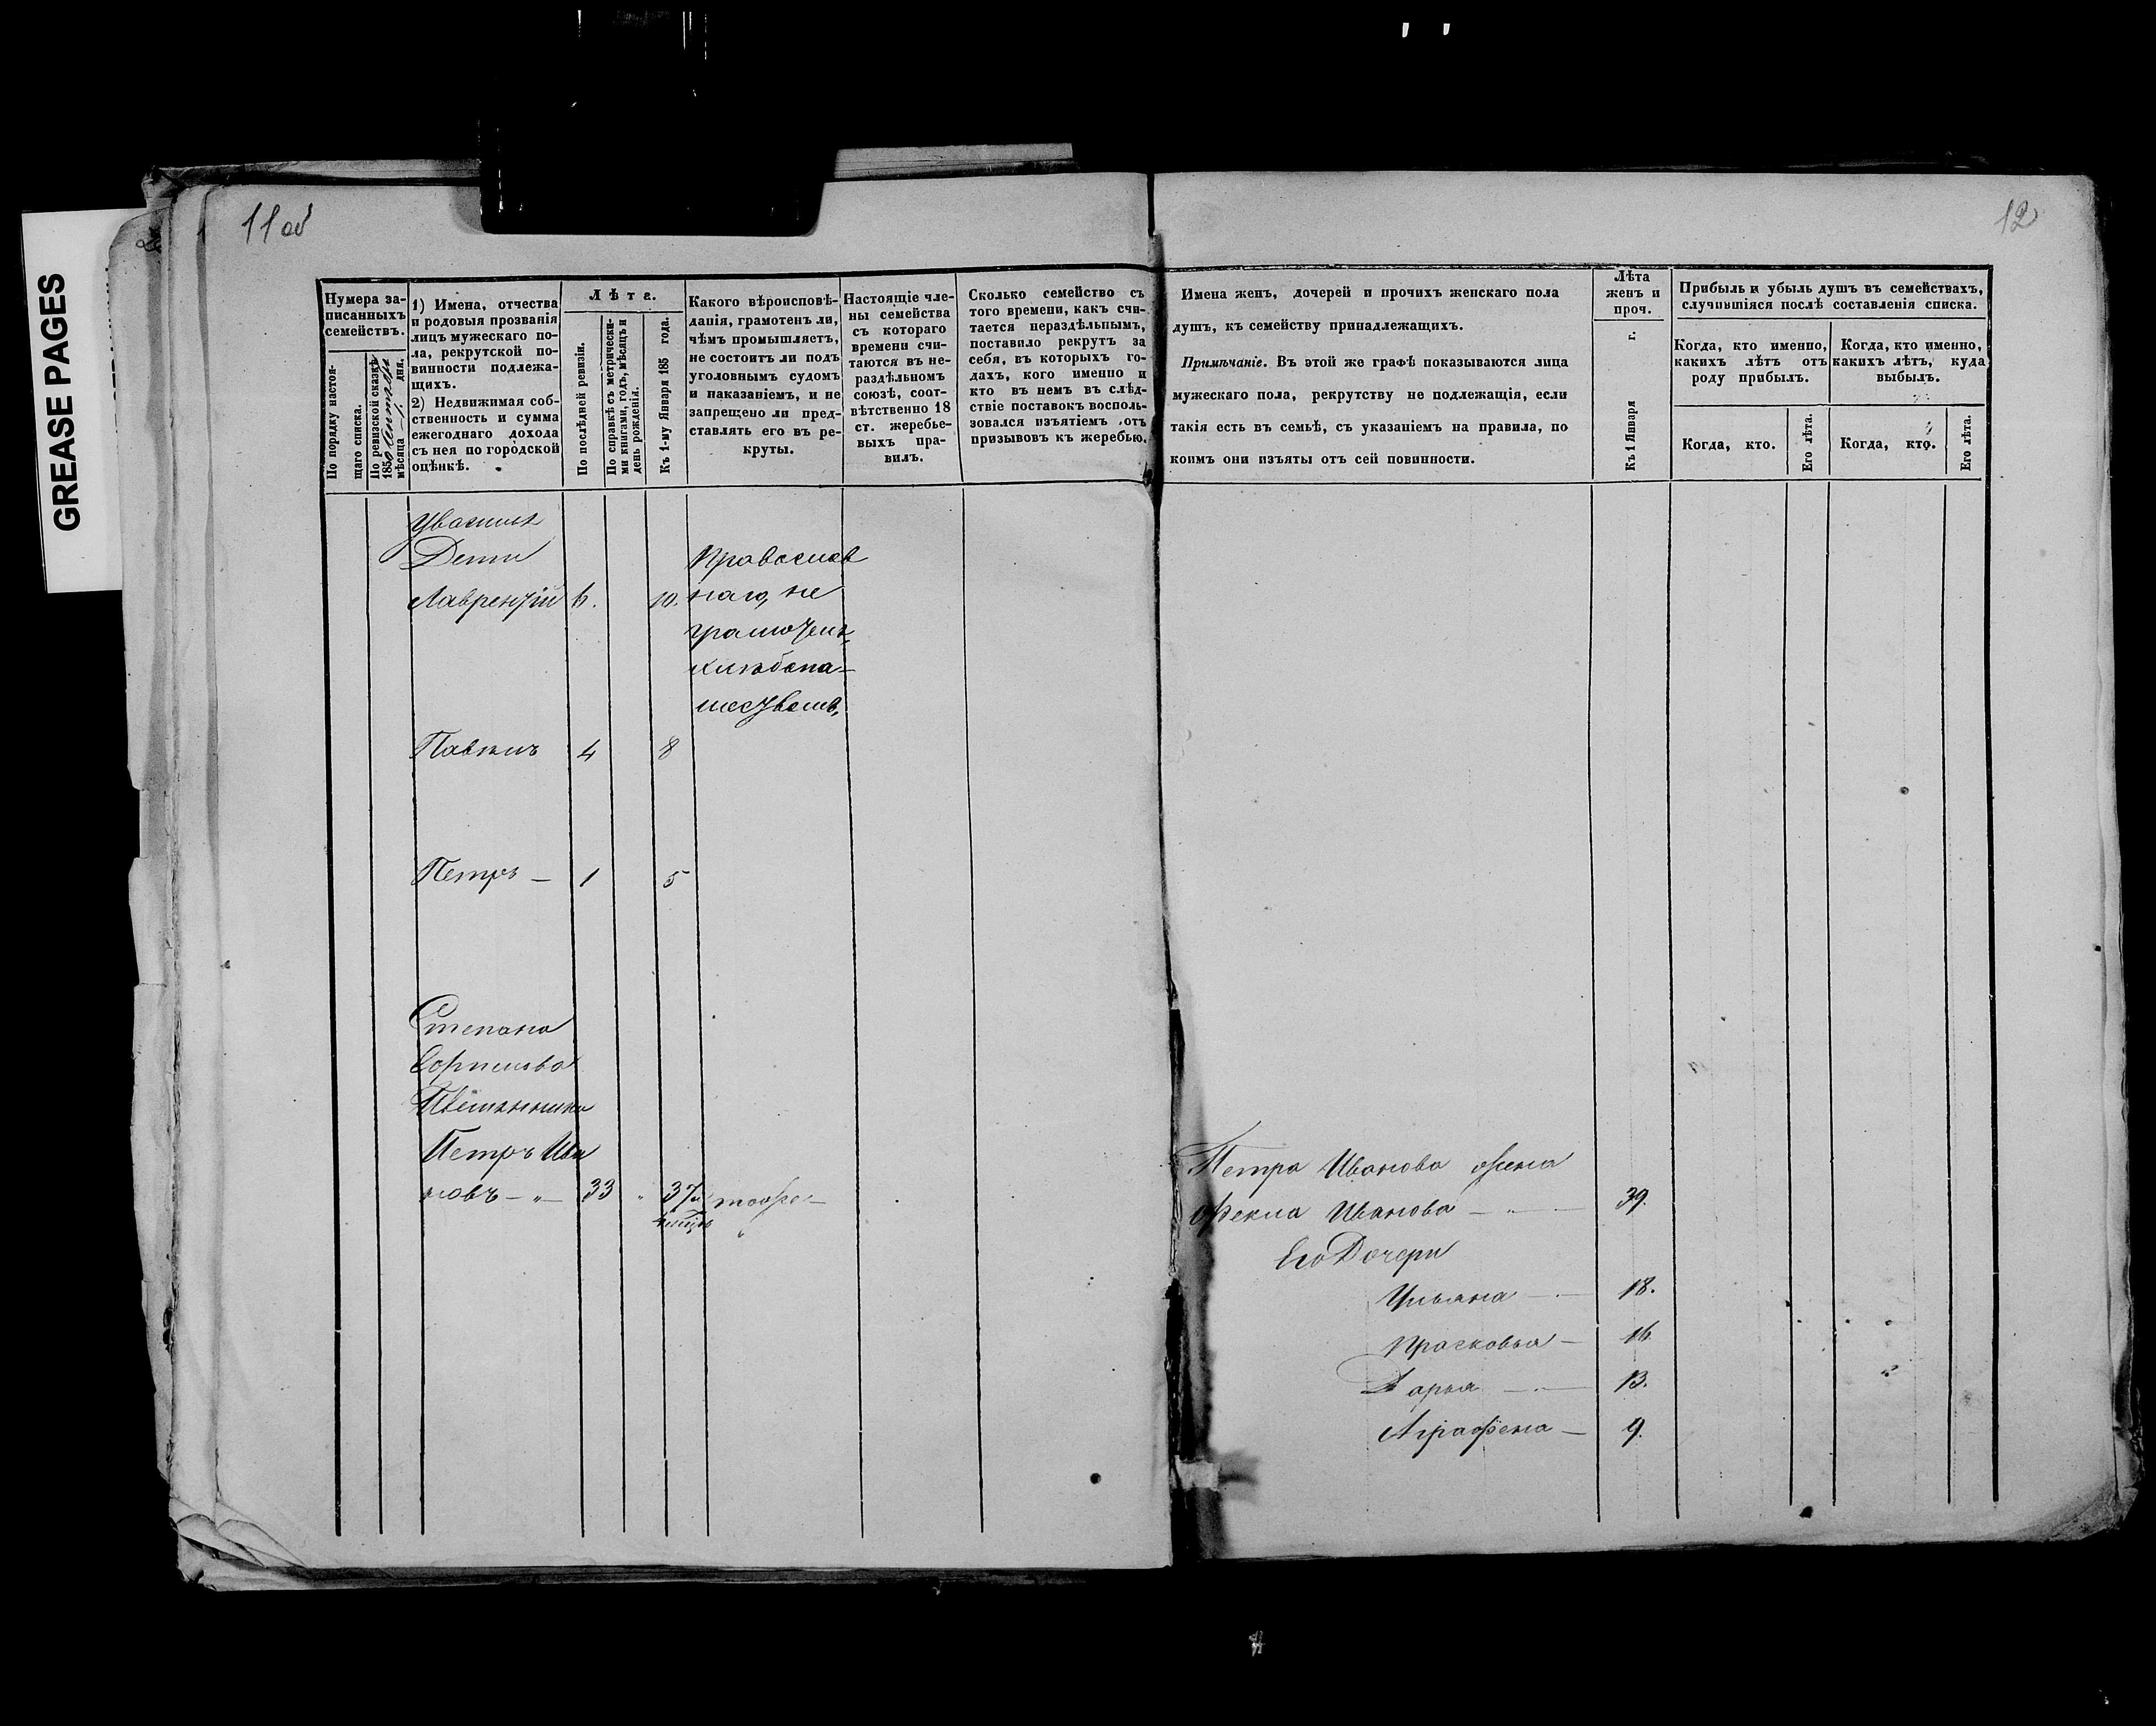 GREASE PAGES
11 об
12
Нумера за-
писанныхъ
семействъ.
По порядку настоя-
щаго списка.
По ревизской сказкѣ
1850
мѣсяца 1 дня.
1) Имена, отчества
и родовыя прозванія
лицъ мужескаго по-
ла, рекрутской по-
винности подлежа-
щихъ.
2) Недвижимая соб-
ственность и сумма
ежегоднаго дохода
съ нея по городской
оцѣнкѣ.
Лѣта.
По послѣдней ревизіи.
По справкѣ съ метрически-
ми книгами, годъ, мѣсяцъ и
день рожденія.
Къ 1-му Января 185 года.
Какого вѣроисповѣ-
данія, грамотенъ ли,
чѣмъ промышляетъ,
не состоитъ ли подъ
уголовнымъ судомъ
и наказаніемъ, и не
запрещено ли пред-
ставлять его въ ре-
круты.
Настоящіе чле-
ны семейства
съ котораго
времени счи-
таются въ не-
раздѣльномъ
союзѣ, соот-
вѣтственно 18
ст. жеребье-
выхъ пра-
вилъ.
Сколько семейство съ
того времени, какъ счи-
тается нераздѣльнымъ,
поставило рекрутъ за
себя, въ которыхъ го-
дахъ, кого именно и
кто въ немъ въ слѣд-
ствіе поставокъ восполь-
зовался изъятіемъ отъ
призывовъ къ жеребью.
Имена женъ, дочерей и прочихъ женскаго пола
душъ, къ семейству принадлежащихъ.
Примѣчаніе. Въ этой же графѣ показываются лица
мужескаго пола, рекрутству не подлежащія, если
такія есть въ семьѣ, съ указаніемъ на правила, по
коимъ они изъяты отъ сей повинности.
Лѣта
женъ и
проч.
Къ 1 Января г.
Прибыль и убыль душъ въ семействахъ,
случившіяся послѣ составленія списка.
Когда, кто именно,
какихъ лѣтъ отъ
роду прибылъ.
Когда, кто именно,
какихъ лѣтъ, куда
выбылъ.
Когда, кто.
Его лѣта.
Когда, кто.
Его лѣта.
Дети
Лаврентій 6. 10.
Православ
наго, не
грамотенъ,
хлѣбопа-
шествомъ,
Павелъ 4 8
Петръ — 1 5
Степана
Племянники
Петръ Ива
новъ — „ — 33 „ 37 тоже —
Петра Иванова жена
Фекла Иванова — „ — 39.
Его Дочери
Ульяна — 18.
Прасковья — 16
Дарья — 13.
Аграфена — 9.